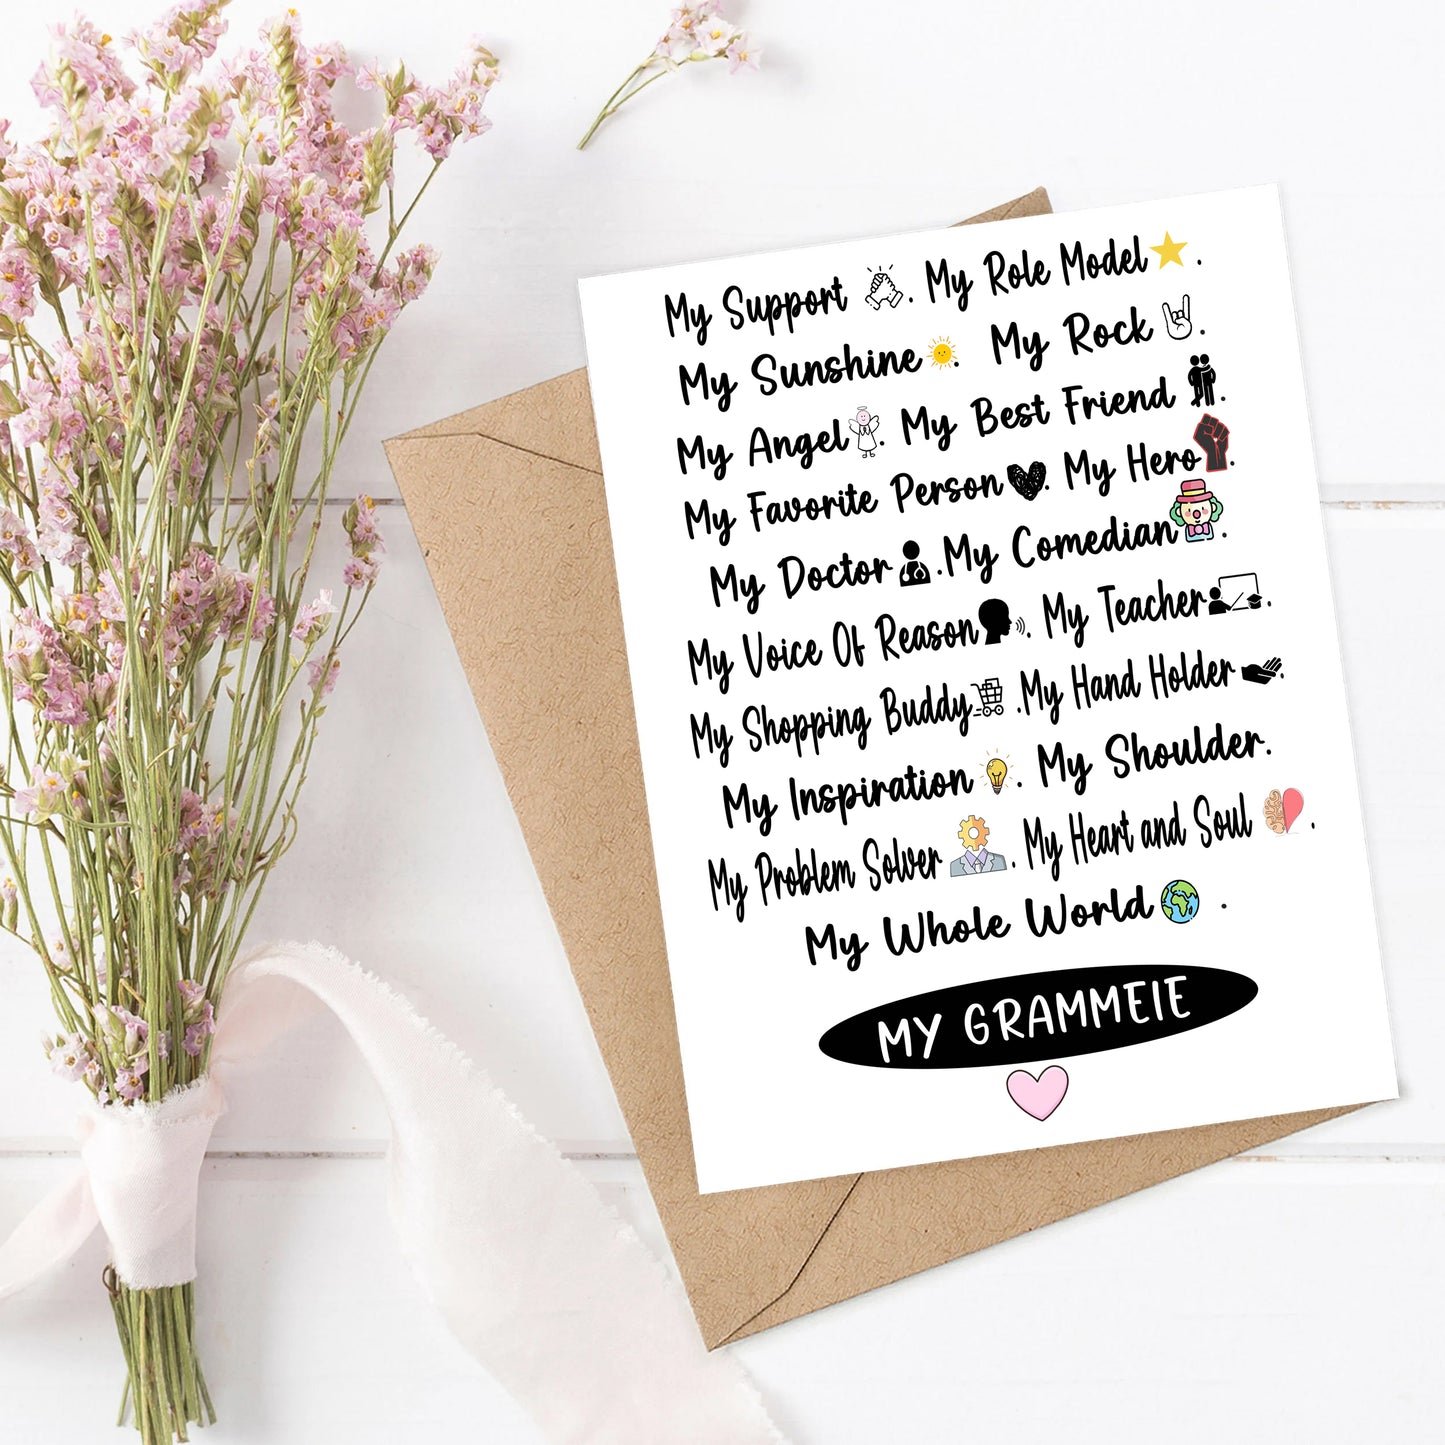 My Support . My Role Model .
My Sunshine . My Rock .
My Angel . My Best Friend .
My Favorite Person . My Hero .
My Doctor . My Comedian .
My Voice Of Reason . My Teacher .
My Shopping Buddy . My Hand Holder .
My Inspiration . My Shoulder.
My Problem Solver . My Heart and Soul .
My Whole World .
MY GRAMMEIE